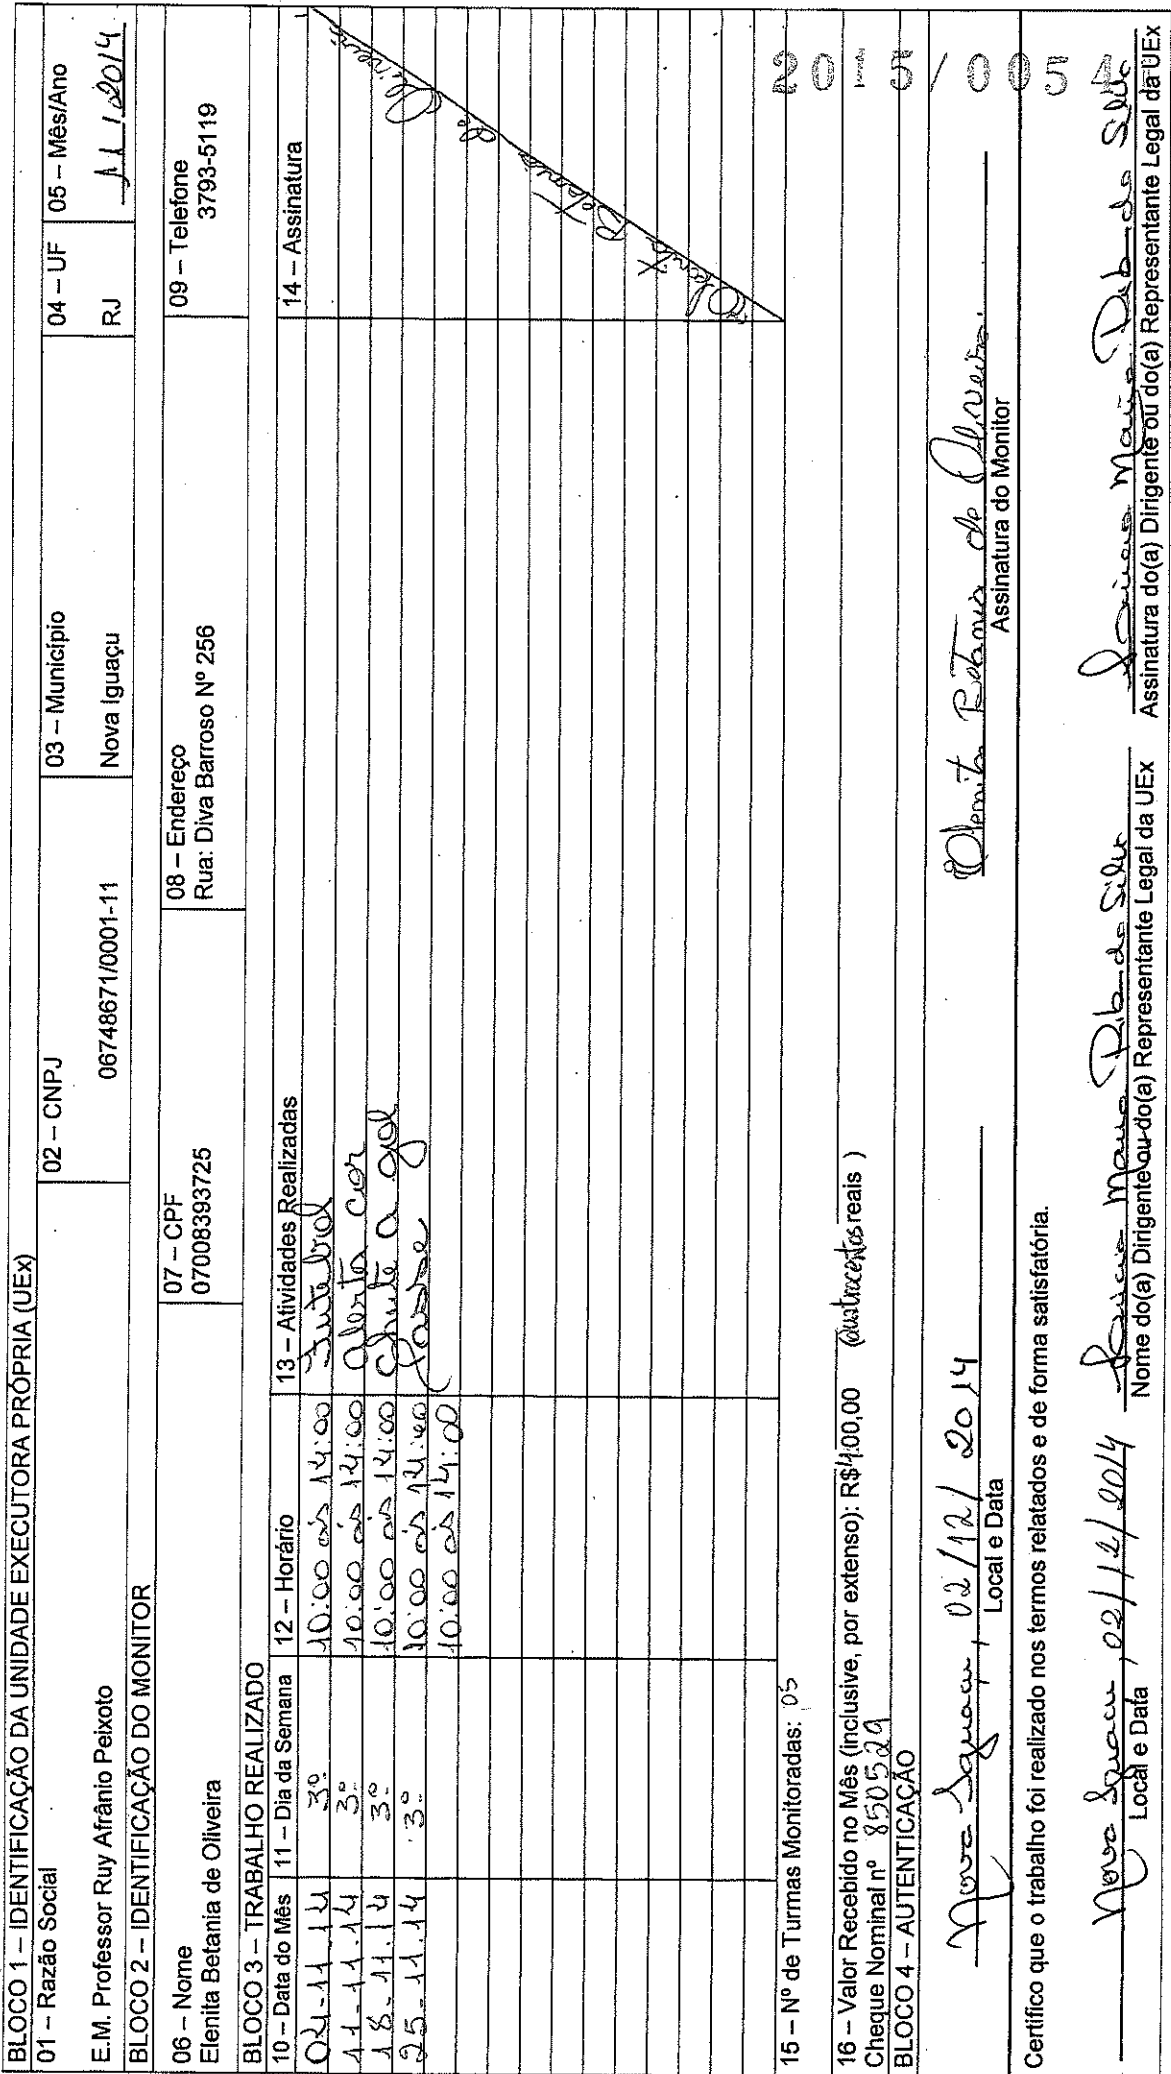 BLOCO 1 – IDENTIFICAÇÃO DA UNIDADE EXECUTORA PRÓPRIA (UEx)
01 – Razão Social
E.M. Professor Ruy Afrânio Peixoto
02 – CNPJ
06748671/0001-11
03 – Município
Nova Iguaçu
04 – UF
RJ
05 – Mês/Ano
11/2014
BLOCO 2 – IDENTIFICAÇÃO DO MONITOR
06 – Nome
Elenita Betania de Oliveira
07 – CPF
07008393725
08 – Endereço
Rua: Diva Barroso Nº 256
09 – Telefone
3793-5119
BLOCO 3 – TRABALHO REALIZADO
10 – Data do Mês 11 – Dia da Semana 12 – Horário 13 – Atividades Realizadas 14 – Assinatura
04-11-14 3º 10:00 às 14:00 Futebol
11-11-14 3º 10:00 às 14:00 alerta cor
18-11-14 3º 10:00 às 14:00 chute a gol
25-11-14 3º 10:00 às 14:00 passe
10:00 às 14:00
Elenita Betania de Oliveira
15 – Nº de Turmas Monitoradas: 05
16 – Valor Recebido no Mês (inclusive, por extenso): R$400,00 (quatrocentos reais )
Cheque Nominal nº 850529
BLOCO 4 – AUTENTICAÇÃO
Nova Iguaçu, 02/12/2014
Local e Data
Elenita Betania de Oliveira
Assinatura do Monitor
Certifico que o trabalho foi realizado nos termos relatados e de forma satisfatória.
Nova Iguaçu, 02/12/2014
Local e Data
Maria Rib. da Silva
Nome do(a) Dirigente ou do(a) Representante Legal da UEx
Maria Rib. da Silva
Assinatura do(a) Dirigente ou do(a) Representante Legal da UEx
2015/0054